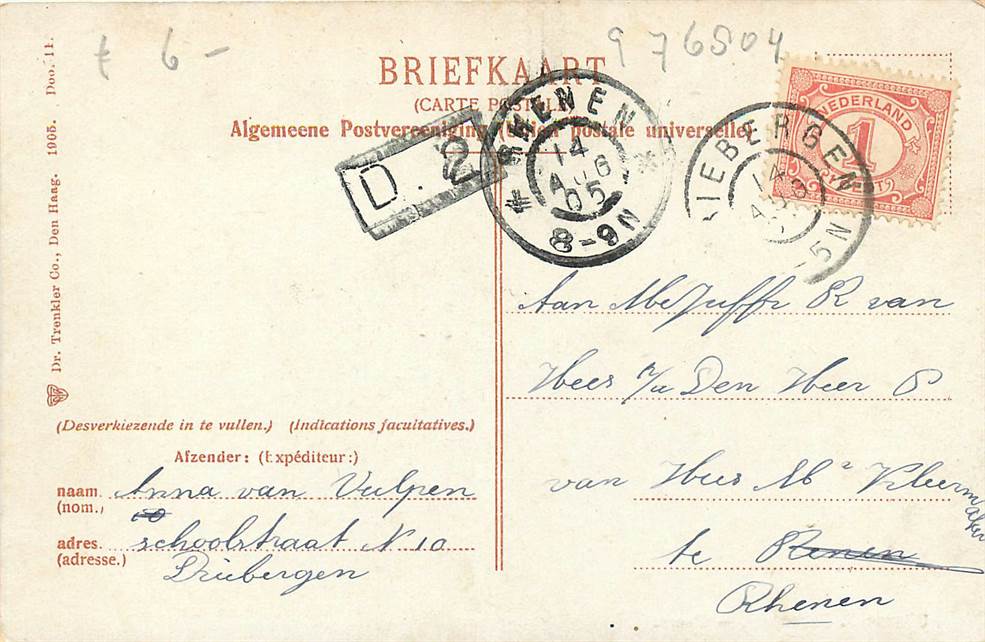 f 6 -
976504
BRIEFKAART
(CARTE POSTALE)
Algemeene Postvereeniging (Union postale universelle)
D. 2
RHENEN
14
AUG
05
8-9N
DRIEBERGEN
14
-5N
NEDERLAND
1
CENT
Aan Mejuffr R van
Hees
Den Heer P
van Hees Mr Vleerm
aker
te Renen
Rhenen
(Desverkiezende in te vullen.) (Indications facultatives.)
Afzender: (Expéditeur:)
naam. Anna van Vulpen
(nom.)
adres. schoolstraat N 10
(adresse.) Driebergen
Dr. Trenkler Co., Den Haag. 1905. Doo. 11.